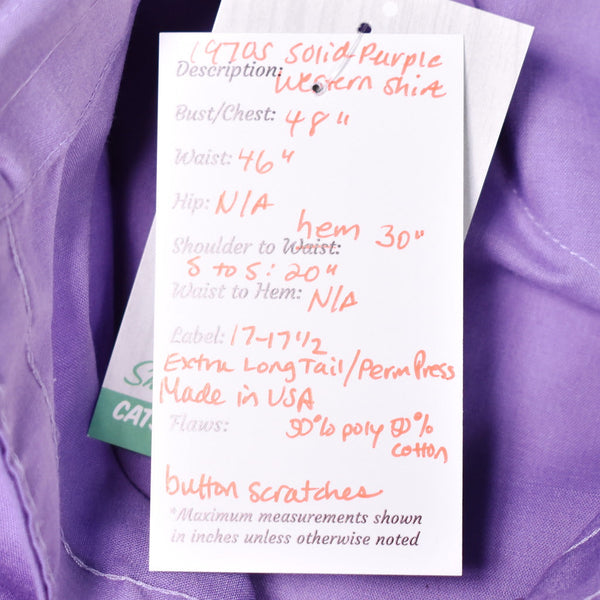 1970s Solid Purple
Description: Western Shirt
Bust/Chest: 48"
Waist: 46"
Hip: N/A
hem 30"
Shoulder to Waist:
S to S: 20"
Waist to Hem: N/A
Label: 17-17 1/2
Extra Long Tail/Perm Press
Made in USA
Flaws: 50% poly 50% cotton
button scratches
*Maximum measurements shown
in inches unless otherwise noted
CATS